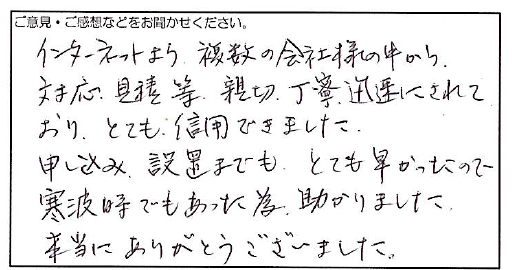 ご意見・ご感想などをお聞かせください。
インターネットより、複数の会社様の中から、
対応、見積等、親切、丁寧、迅速にされて
おり、とても信用できました。
申し込み、設置までも、とても早かったので
寒波時でもあった為、助かりました。
本当にありがとうございました。